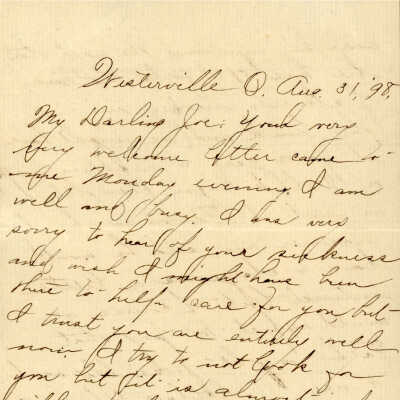 Westerville O. Aug. 31, '98,
My Darling Joe: Your very
very welcome letter came to
me Monday evening. I am
well and busy. I was very
sorry to hear of your sickness
and wish I might have been
there to help care for you but
I trust you are entirely well
now. I try to not look for
you but it is almost